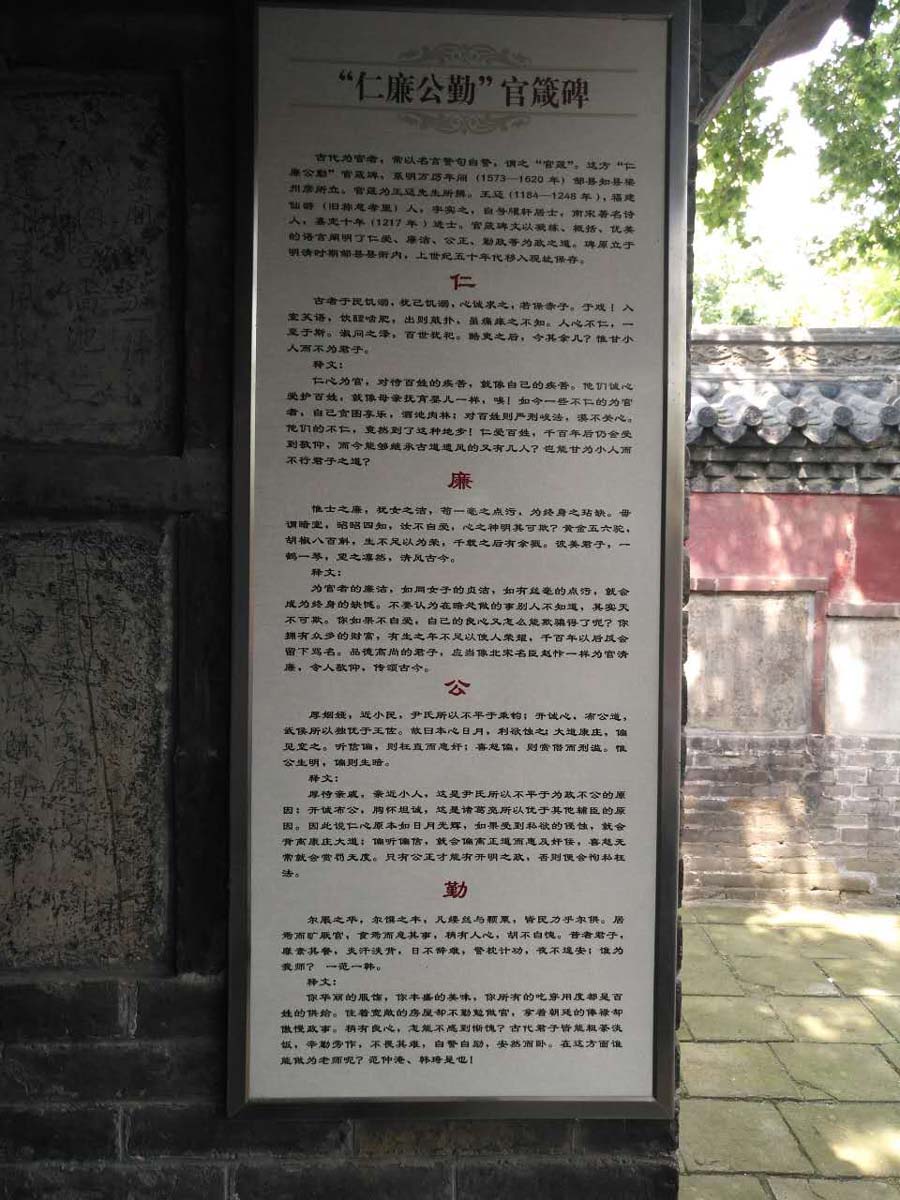 “仁廉公勤”官箴碑
古代为官者，常以名言警句自警，谓之“官箴”。这方“仁
廉公勤”官箴碑，系明万历年间（1573—1620 年）邹县知县梁
州彦所立。官箴为王迈先生所撰。王迈（1184—1248 年），福建
仙游（旧称慈孝里）人，字实之，自号臞轩居士，南宋著名诗
人，嘉定十年（1217 年）进士。官箴碑文以凝练、概括、优美
的语言阐明了仁爱、廉洁、公正、勤政等为政之道。碑原立于
明清时期邹县县衙内，上世纪五十年代移入现址保存。
仁
古者于民饥溺，犹己饥溺，心诚求之，若保赤子。于戏！入
室笑语，饮醲啮肥，出则敲扑，虽痛痒之不知。人心不仁，一
至于斯。淑问之泽，百世犹祀。酷吏之后，今其余几？惟甘小
人而不为君子。
释文：
仁心为官，对待百姓的疾苦，就像自己的疾苦。他们诚心
爱护百姓，就像母亲抚育婴儿一样，唉！如今一些不仁的为官
者，自己贪图享乐，酒池肉林；对百姓则严刑峻法，漠不关心。
他们的不仁，竟然到了这种地步！仁爱百姓，千百年后仍会受
到敬仰，而今能够继承古道遗风的又有几人？岂能甘为小人而
不行君子之道？
廉
惟士之廉，犹女之洁，苟一毫之点污，为终身之玷缺。毋
谓暗室，昭昭四知，汝不自爱，心之神明其可欺？黄金五六驼，
胡椒八百斛，生不足以为荣，千载之后有余戮。彼美君子，一
鹤一琴，望之凛然，清风古今。
释文：
为官者的廉洁，如同女子的贞洁，如有丝毫的点污，就会
成为终身的缺憾。不要认为在暗处做的事别人不知道，其实天
不可欺。你如果不自爱，自己的良心又怎么能欺骗得了呢？你
拥有众多的财富，有生之年不足以使人荣耀，千百年以后反会
留下骂名。品德高尚的君子，应当像北宋名臣赵忭一样为官清
廉，令人敬仰，传颂古今。
公
厚姻娅，近小民，尹氏所以不平于秉钧；开诚心，布公道，
武侯所以独优于王佐。故曰本心日月，利欲蚀之；大道康庄，偏
见窒之。听信偏，则枉直而惠奸；喜怒偏，则赏僭而刑滥。惟
公生明，偏则生暗。
释文：
厚待亲戚，亲近小人，这是尹氏所以不平于为政不公的原
因；开诚布公，胸怀坦诚，这是诸葛亮所以优于其他辅臣的原
因。因此说仁心原本如日月光辉，如果受到私欲的侵蚀，就会
背离康庄大道；偏听偏信，就会偏离正道而惠及奸佞，喜怒无
常就会赏罚无度。只有公正才能有开明之政，否则便会徇私枉
法。
勤
尔服之华，尔馔之丰，凡缕丝与颗粟，皆民力乎尔供。居
焉而旷厥官，食焉而怠其事，稍有人心，胡不自愧。昔者君子，
靡素其餐，炎汗浃背，日不辞难，警枕计功，夜不遑安；谁为
我师？ 一范一韩。
释文：
你华丽的服饰，你丰盛的美味，你所有的吃穿用度都是百
姓的供给。住着宽敞的房屋却不勤勉做官，拿着朝廷的俸禄却
傲慢政事。稍有良心，怎能不感到惭愧？古代君子皆能粗茶淡
饭，辛勤劳作，不畏其难，自警自励，安然而卧。在这方面谁
能做为老师呢？范仲淹、韩琦是也！